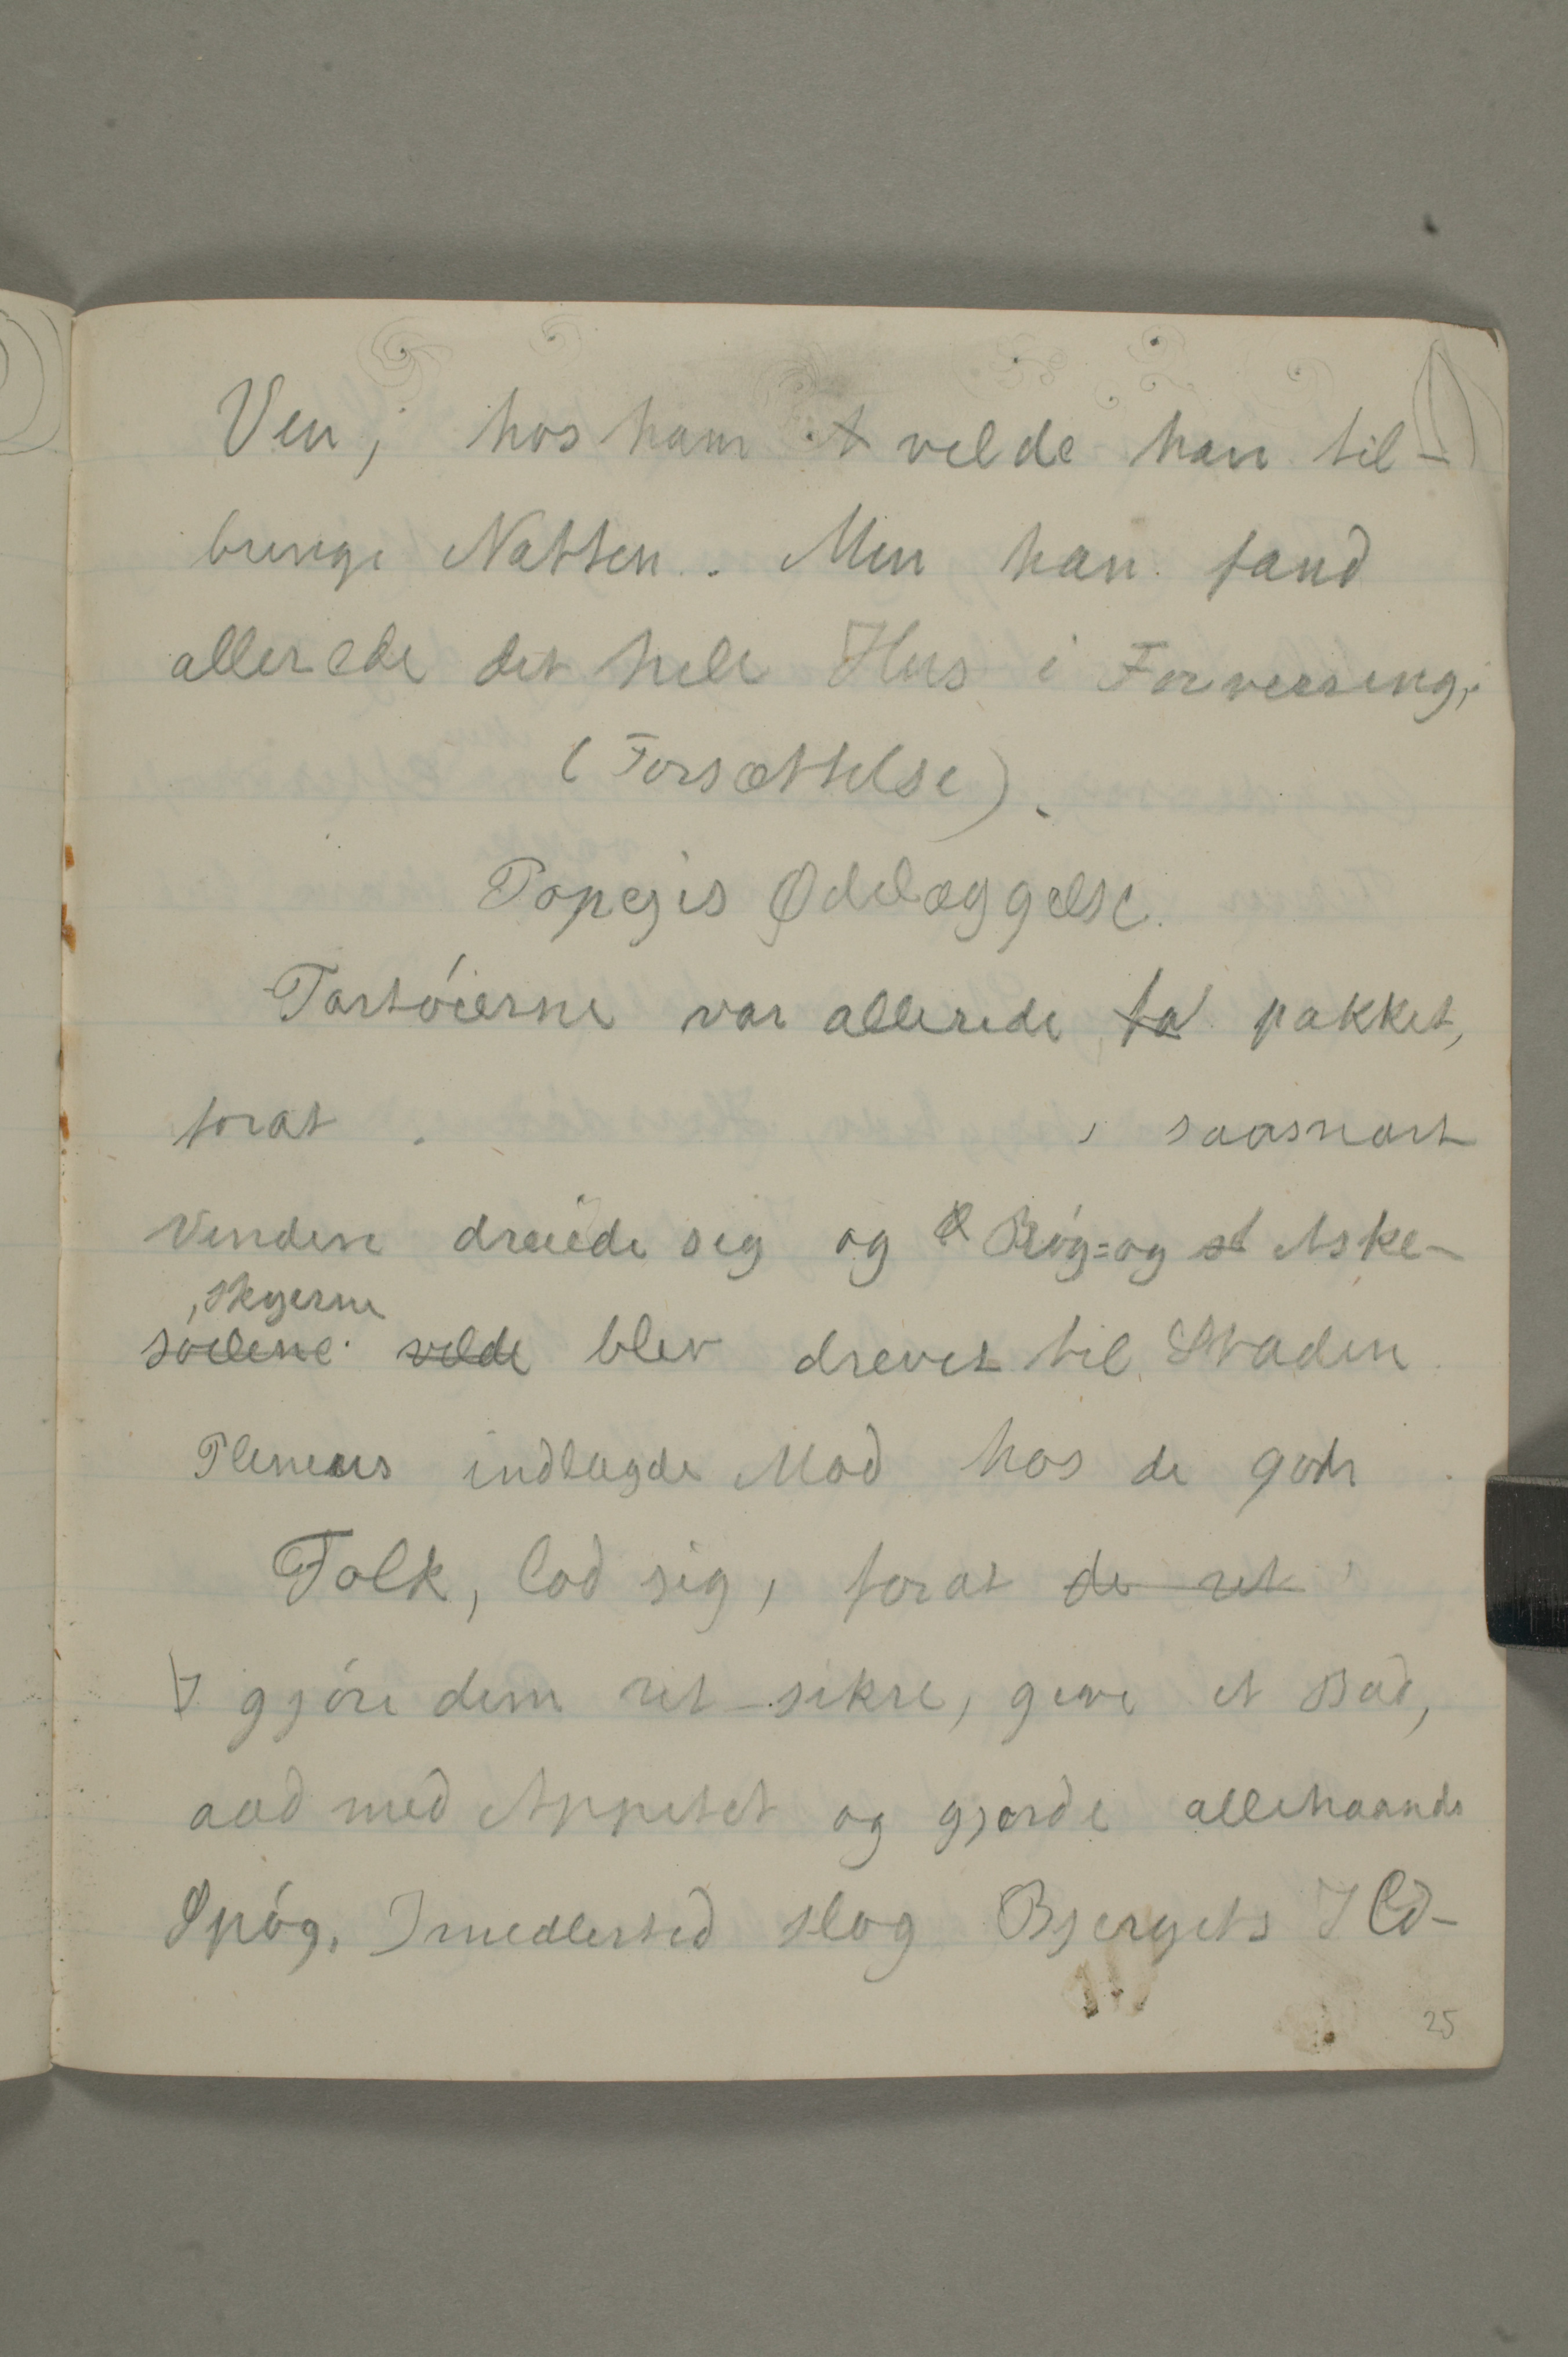 Ven; hos ham vilde han til-
bringe Natten. Men han fand
allerede det hele Hus i Forvirring,
(Forsættelse).
Popejis Ødelæggelse.
Fartóierne var allerede fa pakket,
forat , saasnart
Vinden dreiede sig og R Róg= og st Aske-
, skyerne
sóilene vilde blev drevet til Staden
Plinius indlagde Mod hos de gode
Folk, lod sig, forat de ret
gjóre dem ret sikre, give et Bad,
aad med Appetit og gjorde allehaande
Spóg. Imedlertid slog Bjergets Ild-
25